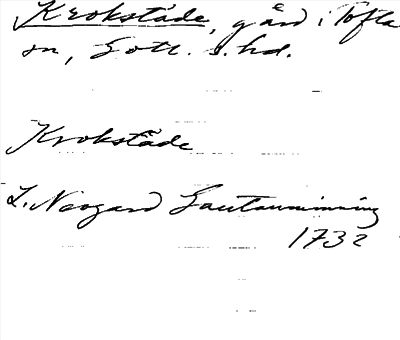 Krokstäde, gård i Tofta
sn, Gotl. s. hd.
Krokstäde
L. Neogard Gautauminning
1732